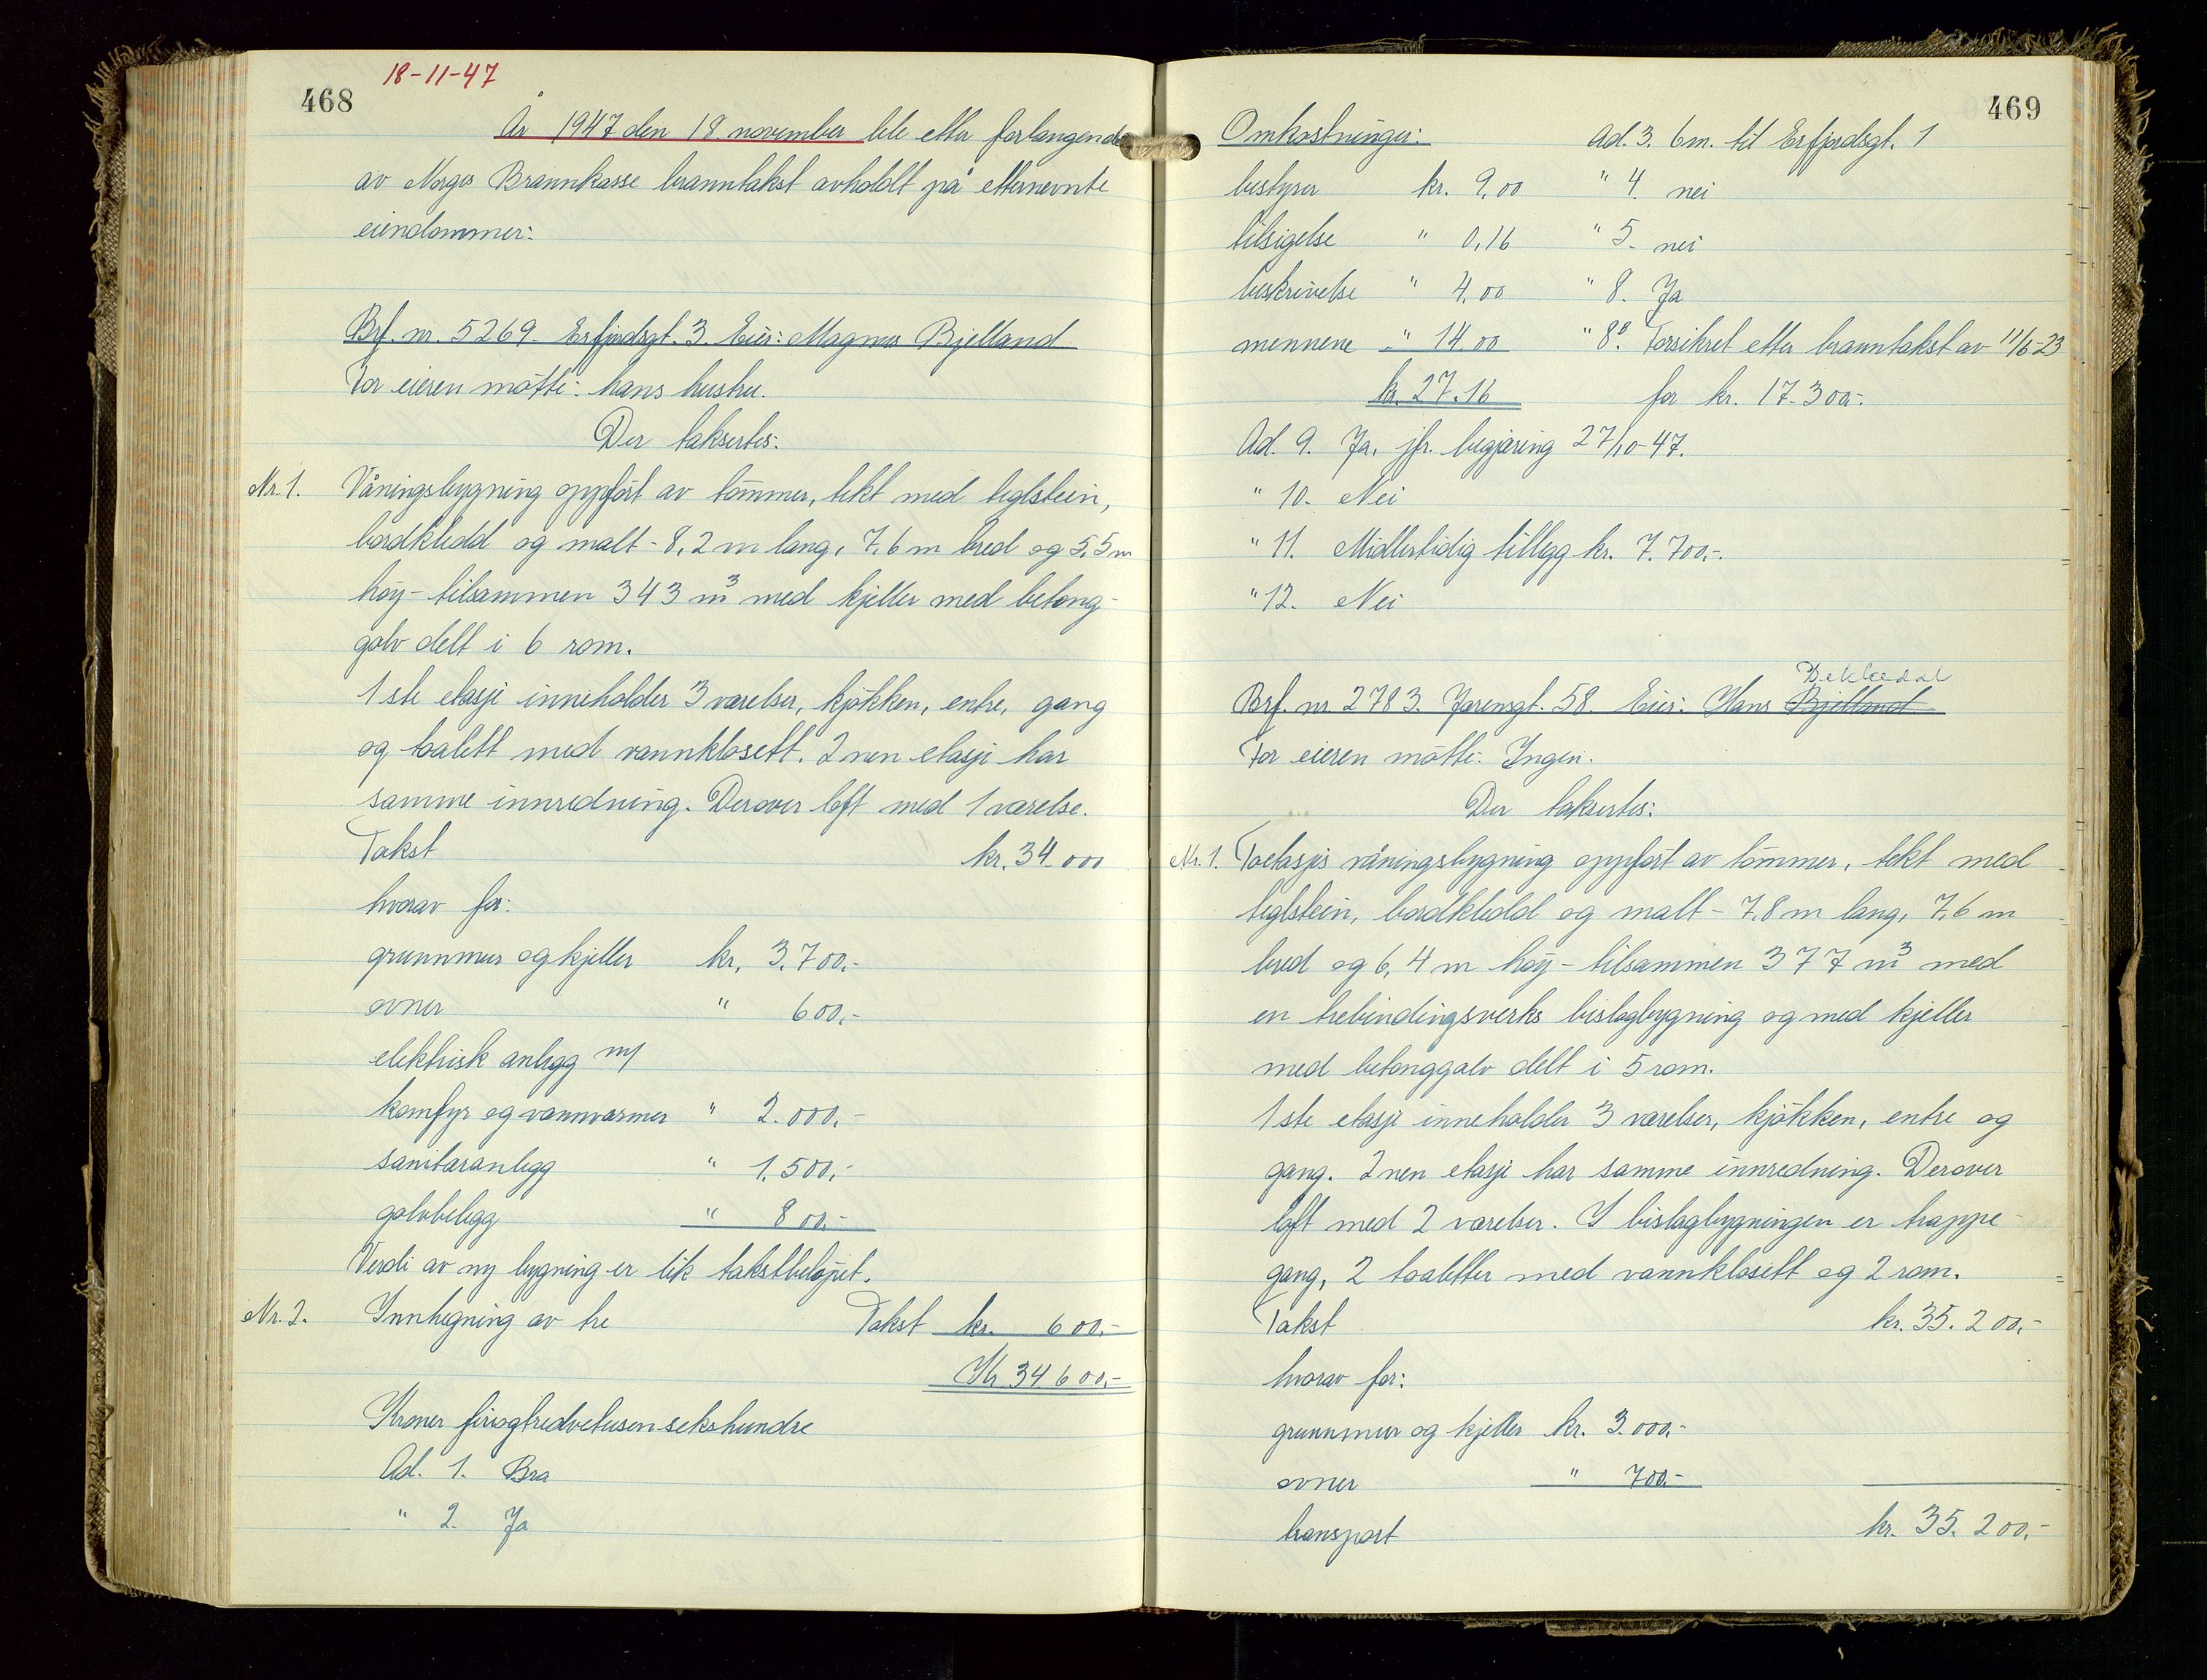 468
18-11-47
År 1947 den 18. november ble etter forlangende
av Norges Brannkasse branntakst avholdt på etternevnte
eiendommer:
Brf. nr. 5269. Erfjordsgt. 3. Eier: Magnus Bjelland
For eieren møtte: hans hustru.
Der taksertes:
Nr. 1. Våningsbygning oppført av tømmer, tekt med teglstein,
bordkledd og malt - 8,2 m lang, 7,6 m bred og 5,5 m
høy - tilsammen 343 m³ med kjeller med betong-
golv delt i 6 rom.
1ste etasje inneholder 3 værelser, kjøkken, entre, gang
og toalett med vannklosett. 2nen etasje har
samme innredning. Derover loft med 1 værelse.
Takst kr. 34.000
hvorav for:
grunnmur og kjeller kr. 3.700.-
ovner " 600.-
elektrisk anlegg m/
komfyr og vannvarmer " 2.000.-
sanitæranlegg " 1.500.-
golvbelegg " 800.-
Verdi av ny bygning er lik takstbeløpet.
Nr. 2. Innhegning av tre Takst kr. 600.-
Kr 34.600.-
Kroner firiogtredvetusensekshundre
Ad. 1. Bra
" 2. Ja
469
Omkostninger:
bestyrer kr. 9,00
tilsigelse " 0,16
beskrivelse " 4,00
mennene " 14.00
kr. 27.16
Ad. 3. 6 m. til Erfjordsgt. 1
" 4. nei
" 5. nei
" 8. Ja
" 8ᴮ. Forsikret etter branntakst av 11/6-23
for kr. 17.300.-
Ad. 9. Ja, jfr. begjæring 27/10-47.
" 10. Nei
" 11. Midlertidig tillegg kr. 7.700.-
" 12. Nei
Bekkedal
Brf. nr. 2783. Jærensgt. 58. Eier: Hans Bjelland
For eieren møtte: Ingen.
Der taksertes:
Nr. 1. Toetasjes våningsbygning oppført av tømmer, tekt med
teglstein, bordkledd og malt - 7,8 m lang, 7,6 m
bred og 6,4 m høy - tilsammen 377 m³ med
en trebindingsverks bislagbygning og med kjeller
med betonggolv delt i 5 rom.
1ste etasje inneholder 3 værelser, kjøkken, entre og
gang. 2nen etasje har samme innredning. Derover
loft med 2 værelser. I bislagbygningen er trappe-
gang, 2 toaletter med vannklosett og 2 rom.
Takst kr. 35.200.-
hvorav for:
grunnmur og kjeller kr. 3.000.-
ovner " 700.-
transport kr. 35.200.-